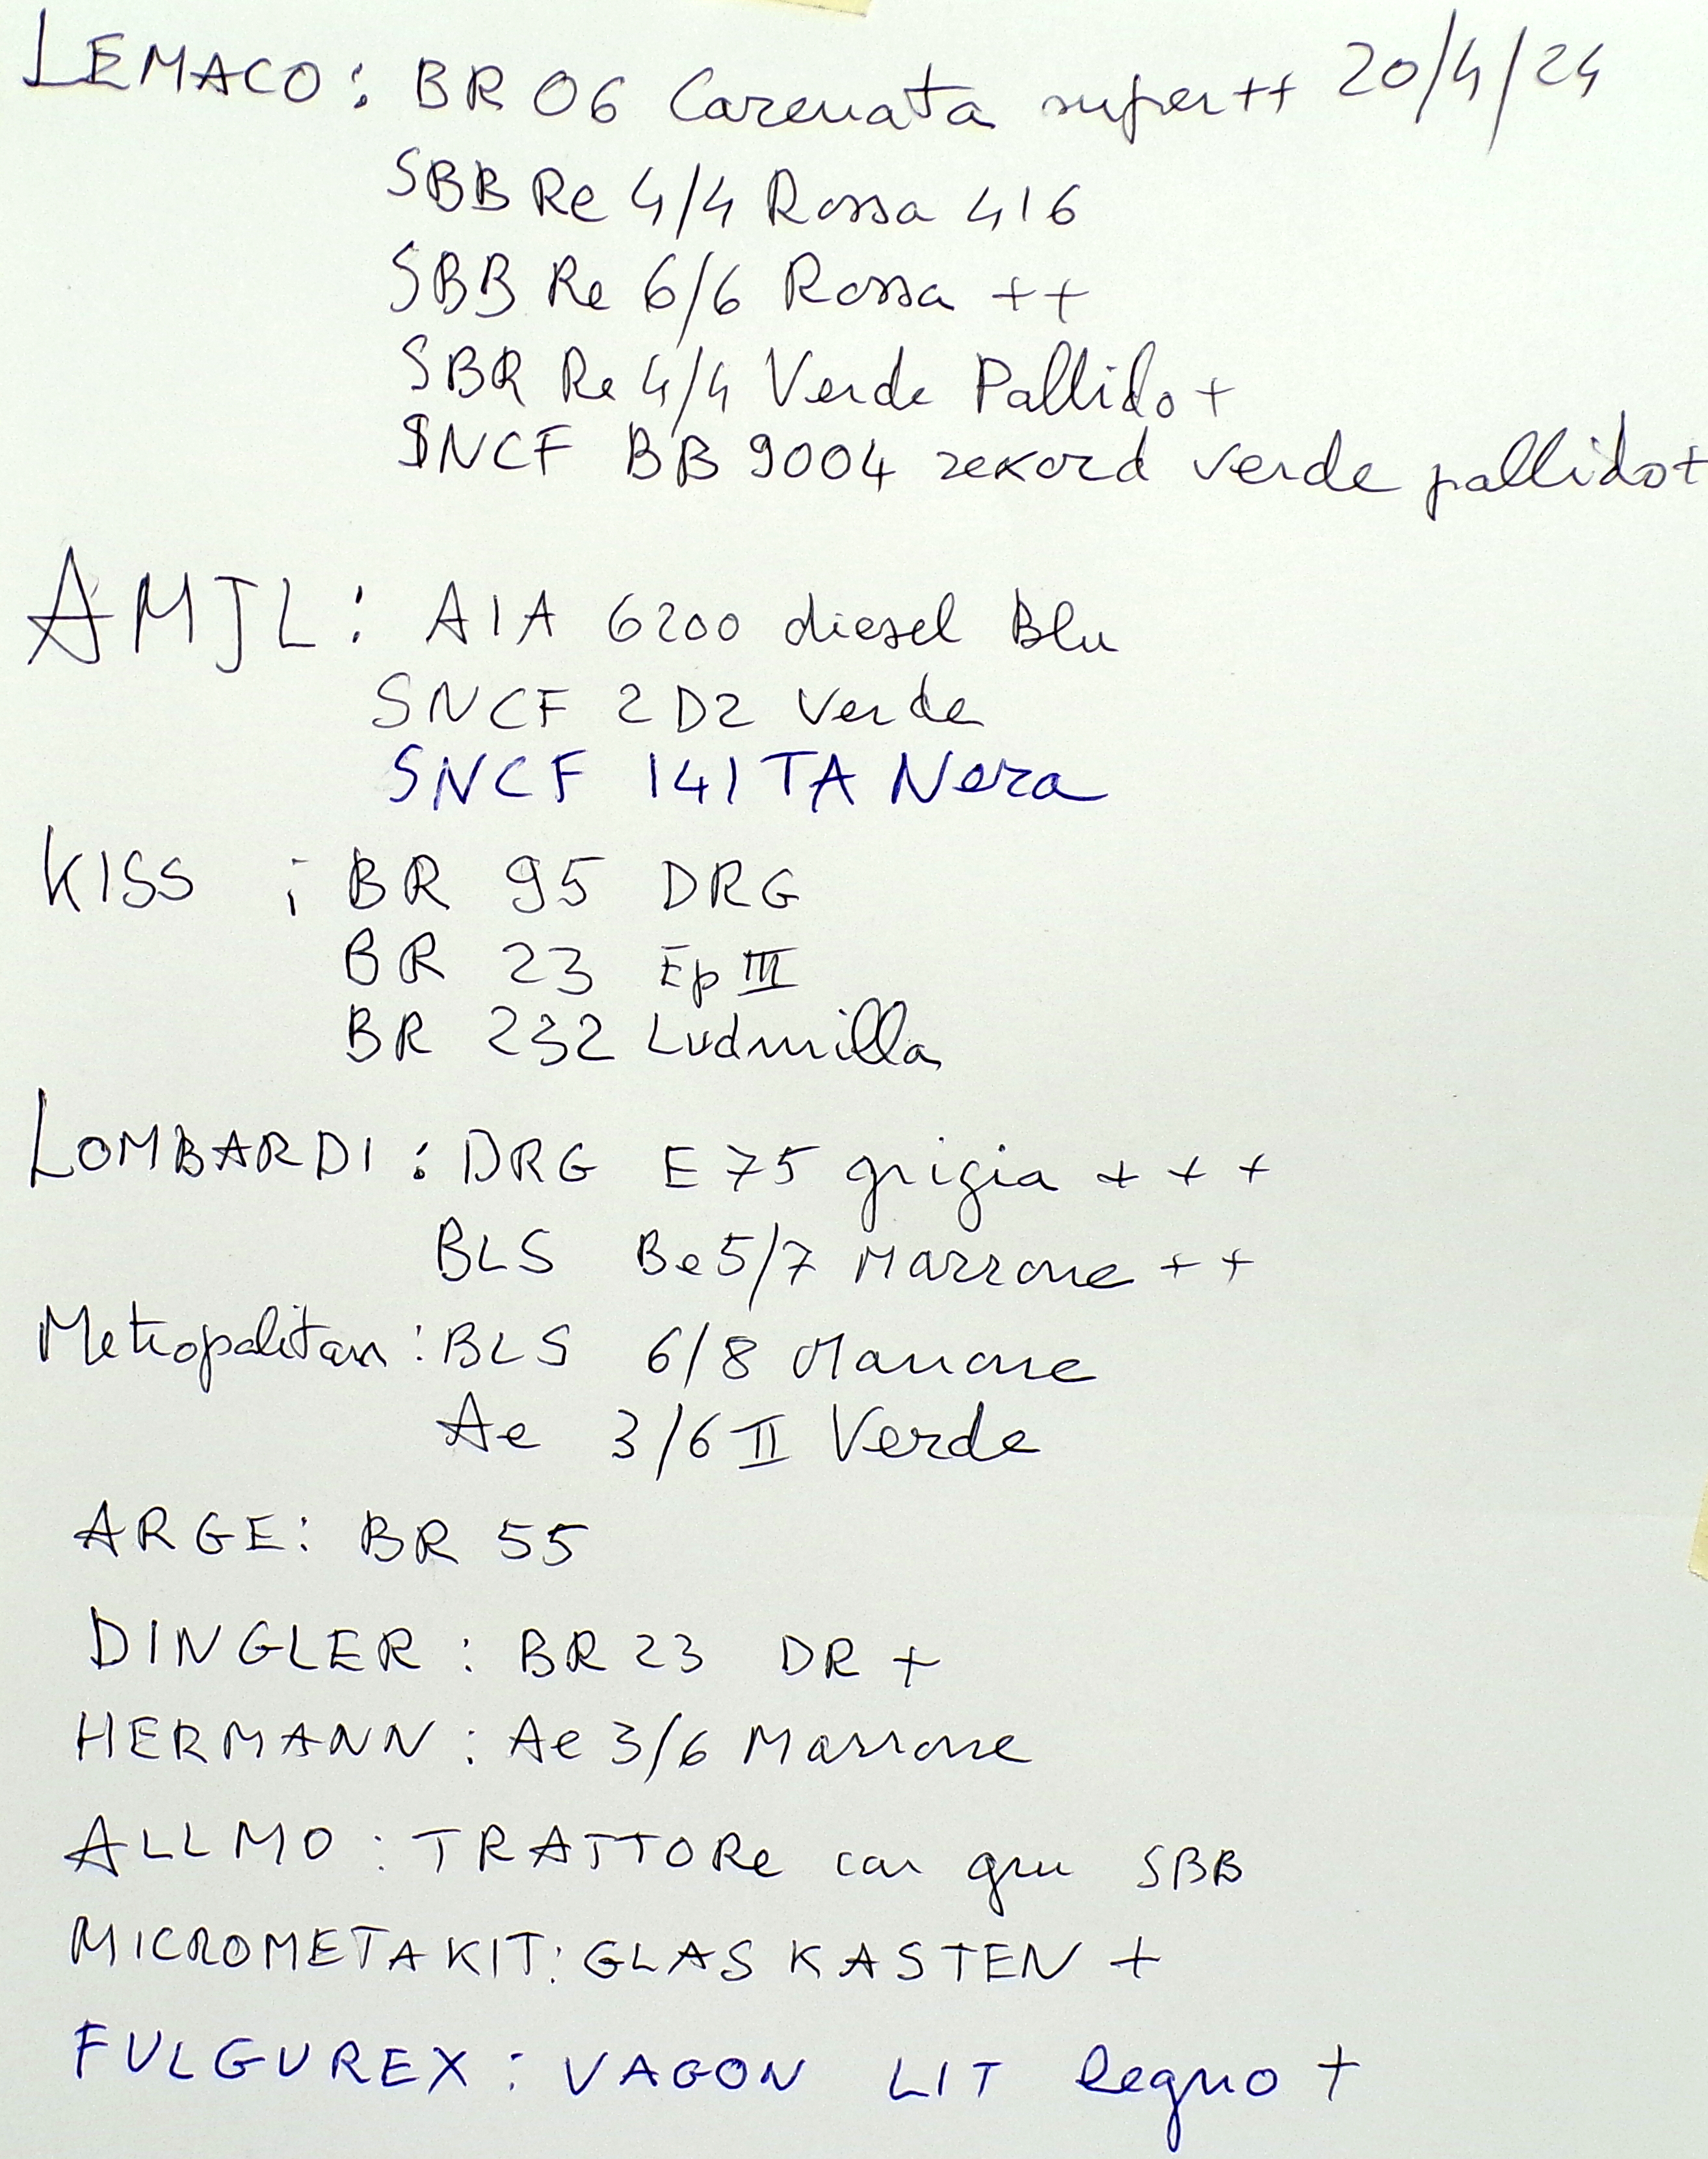 LEMACO: BR 06 Carenata super++ 20/4/24
SBB Re 4/4 Rossa 416
SBB Re 6/6 Rossa ++
SBR Re 4/4 Verde Pallido+
SNCF BB 9004 rekord verde pallido+
AMJL: A1A 6200 diesel Blu
SNCF 2D2 Verde
SNCF 141TA Nera
KISS : BR 95 DRG
BR 23 Ep III
BR 232 Ludmilla
LOMBARDI: DRG E75 grigia +++
BLS Be5/7 Marrone ++
Metropolitan: BLS 6/8 Marrone
Ae 3/6 II Verde
ARGE: BR 55
DINGLER: BR 23 DR +
HERMANN: Ae 3/6 Marrone
ALLMO: TRATTORe con gru SBB
MICROMETAKIT: GLASKASTEN +
FULGUREX: VAGON LIT legno +